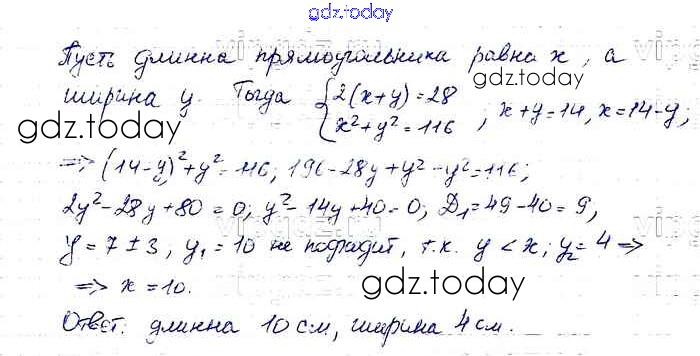 gdz.today
Пусть длинна прямоугольника равна x, а
gdz.today
ширина y. Тогда {2(x+y)=28
x²+y²=116 ; x+y=14, x=14-y;
gdz.today
=> (14-y)²+y²=116; 196-28y+y²-y²=116;
2y²-28y+80=0; y²-14y+40=0; D₁=49-40=9,
y=7±3, y₁=10 не подходит, т.к. y<x; y₂=4 =>
=> x=10.
gdz.today
Ответ: длинна 10 см, ширина 4 см.